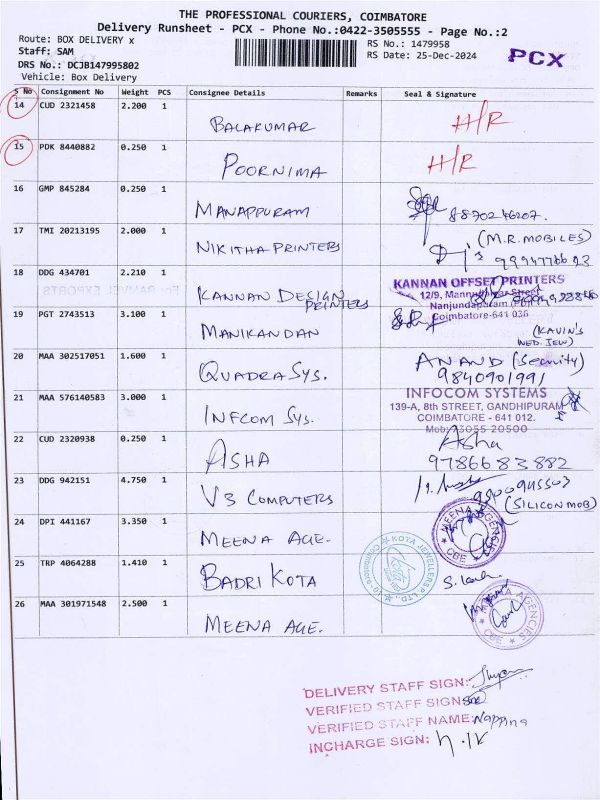 THE PROFESSIONAL COURIERS, COIMBATORE
Delivery Runsheet - PCX - Phone No.:0422-3505555 - Page No.:2
Route: BOX DELIVERY x
Staff: SAM
DRS No.: DCJB147995802
Vehicle: Box Delivery
RS No.: 1479958
RS Date: 25-Dec-2024
PCX
S No Consignment No Weight PCS Consignee Details Remarks Seal & Signature
14 CUD 2321458 2.200 1
BALAKUMAR H/R
15 PDK 8440882 0.250 1
POORNIMA H/R
16 GMP 845284 0.250 1
MANAPPURAM 8870246207.
17 TMI 20213195 2.000 1
NIKITHA PRINTERS (M.R. MOBILES)
18 DDG 434701 2.210 1
KANNAN DESIGN PRINTERS
KANNAN OFFSET PRINTERS
Coimbatore-641 036
19 PGT 2743513 3.100 1
MANIKANDAN (KAVIN'S WED. JEW)
20 MAA 302517051 1.600 1
QUADRA SYS. ANAND (Security)
9840901991
21 MAA 576140583 3.000 1
INFCOM SYS.
INFOCOM SYSTEMS
139-A, 8th STREET, GANDHIPURAM
COIMBATORE - 641 012.
22 CUD 2320938 0.250 1
ASHA Asha
9786683882
23 DDG 942151 4.750 1
V3 COMPUTERS (SILICON MOB)
24 DPI 441167 3.350 1
MEENA AGE. MEENA AGENCIES CBE
25 TRP 4064288 1.410 1
BADRI KOTA KOTA JEWELLERS
26 MAA 301971548 2.500 1
MEENA AGE. AGENCIES CBE
DELIVERY STAFF SIGN:
VERIFIED STAFF SIGN:
VERIFIED STAFF NAME:
INCHARGE SIGN: